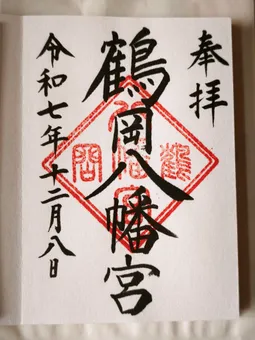 奉拝
鶴岡八幡宮
令和七年十二月八日